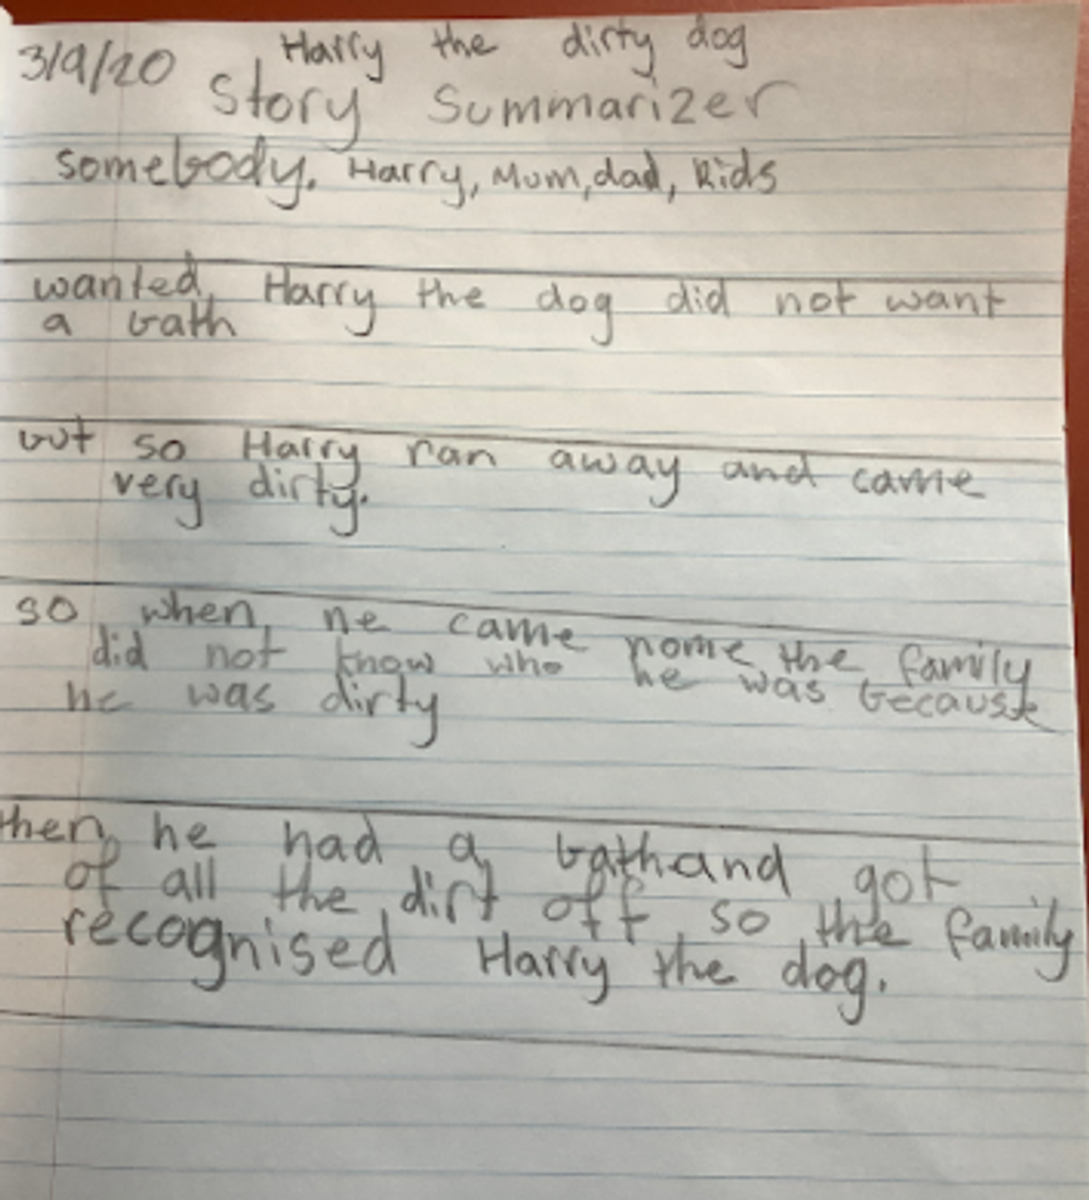 Harry the dirty dog
3/9/20
Story Summarizer
somebody. Harry, Mum, dad, Kids
wanted, Harry the dog did not want
a bath
but so Harry ran away and came
very dirty.
so when he came home the family
did not know who he was because
he was dirty
then he had a bath and got
of all the dirt off so the family
recognised Harry the dog.